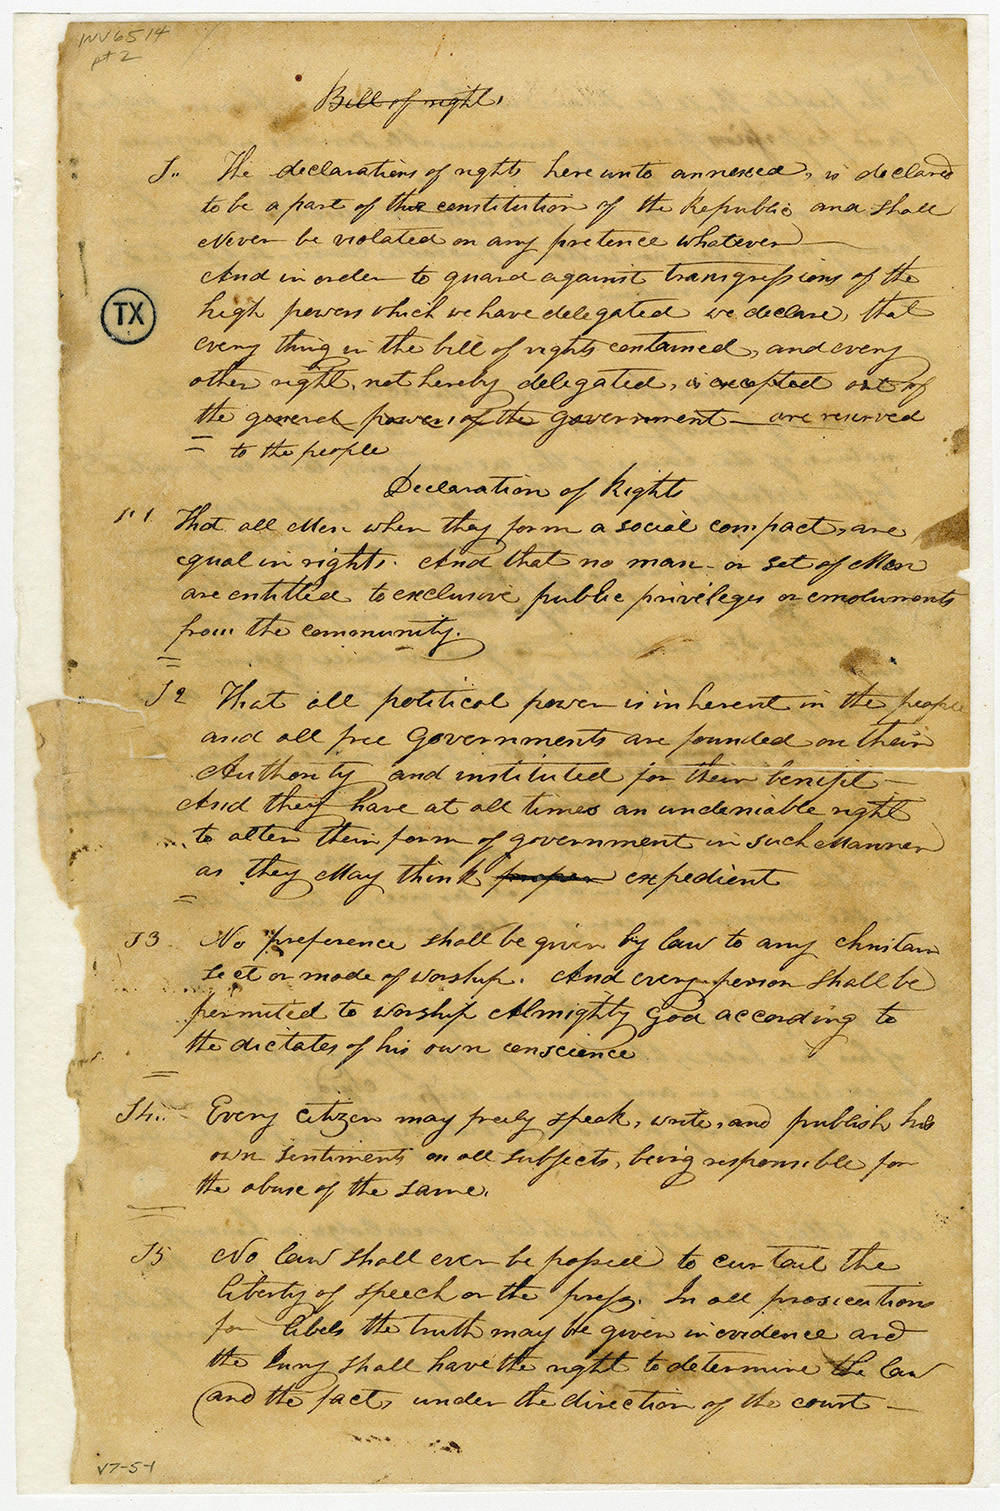 INV6514
pt 2
Bill of right,
S.. The declarations of rights here unto annexed, is declared
to be a part of this constitution of the Republic and shall
Never be violated on any pretence whatever—
And in order to guard against transgressions of the
high powers which we have delegated we declare, that
TX
every thing in the bill of rights contained, and every
other right, not hereby delegated, is excepted out of
the general powers of the Government — are reserved
to the people
Declaration of Rights
1. That all Men when they form a social compact, are
equal in rights. And that no man or set of Men
are entitled to exclusive public privileges or emoluments
from the community.
S 2 That all political power is inherent in the people
and all free Governments are founded on their
Authority and instituted for their benifit —
And they have at all times an undeniable right
to alter their form of government in such Manner
as they May think proper expedient
S 3 No preference shall be given by law to any christian
sect or mode of worship. And every person shall be
permited to worship Almighty God according to
the dictates of his own conscience
S 4.. Every citizen may freely speak, write, and publish his
own sentiments on all subjects, being responsible for
the abuse of the same.
S 5 No law shall ever be passed to curtail the
liberty of speech or the press. In all prosecutions
for libels the truth may be given in evidence and
the Jury shall have the right to determine the law
and the fact, under the direction of the court —
V7-5-1